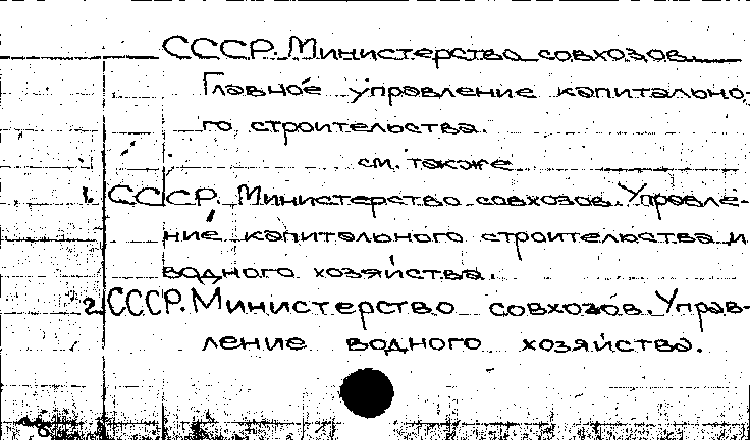 СССР. Министерство совхозов.
Главное управление капитально-
го строительства.
см. также
1. СССР. Министерство совхозов. Управле-
ние капитального строительства и
водного хозяйства.
2. СССР. Министерство совхозов. Управ-
ление водного хозяйства.